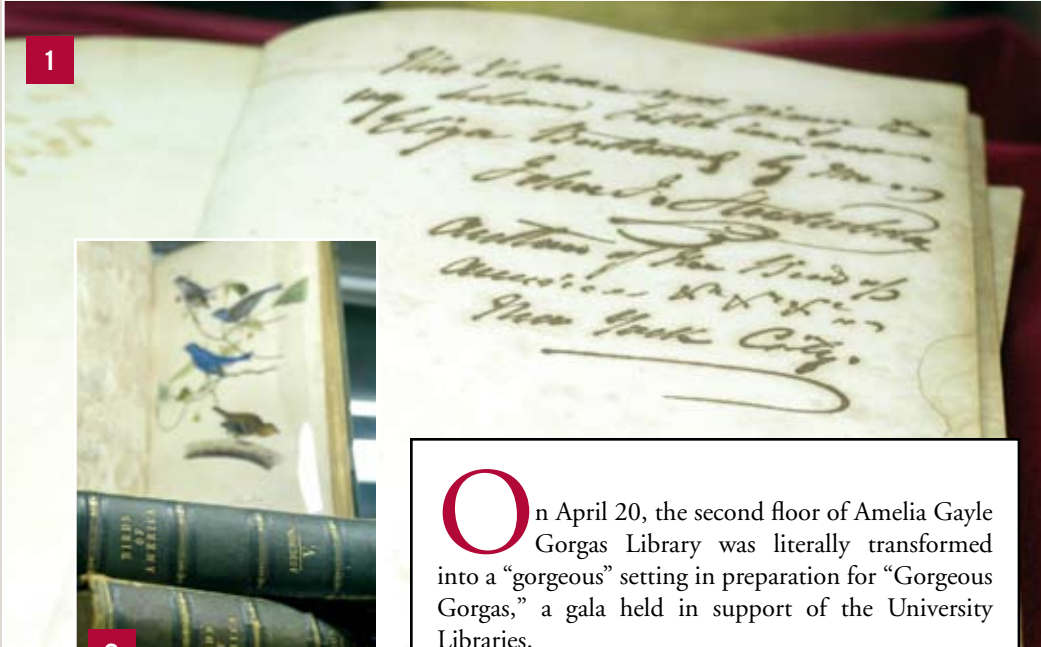 1
This Volume was given to
Eliza by me
John J. Audubon
Author of the Birds of
America
New York City.
BIRDS
OF
AMERICA
AUDUBON.
V.
On April 20, the second floor of Amelia Gayle
Gorgas Library was literally transformed
into a “gorgeous” setting in preparation for “Gorgeous
Gorgas,” a gala held in support of the University
Libraries.